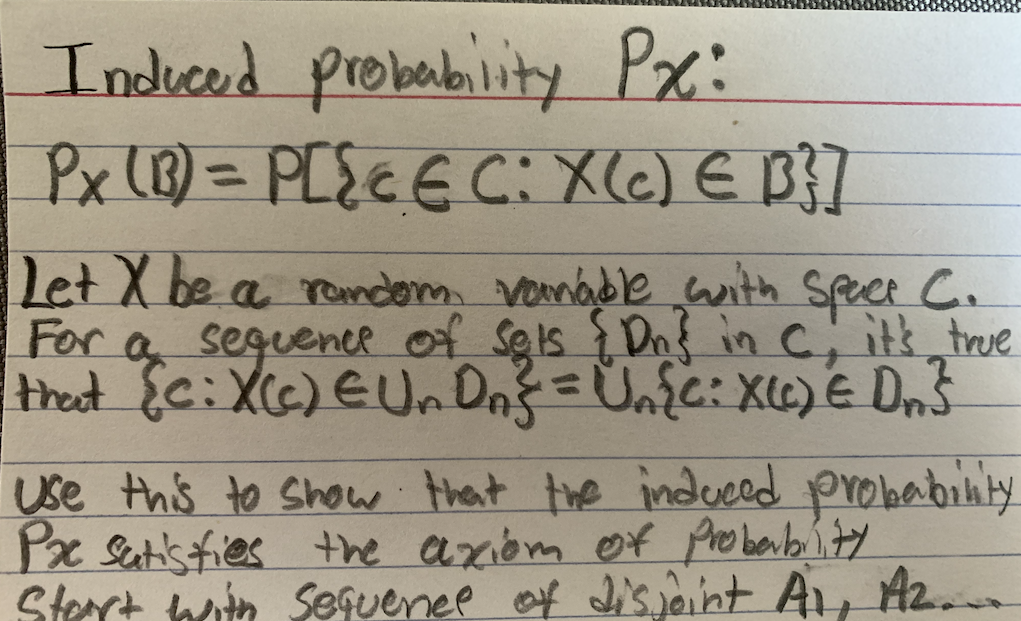 Induced probability Px:
Px(B) = P[{c ∈ C: X(c) ∈ B}]
Let X be a random variable with space C.
For a sequence of sets {Dn} in C, it's true
that {c: X(c) ∈ Un Dn} = Un{c: X(c) ∈ Dn}
Use this to show that the induced probability
Px satisfies the axiom of probability
Start with sequence of disjoint A1, A2...